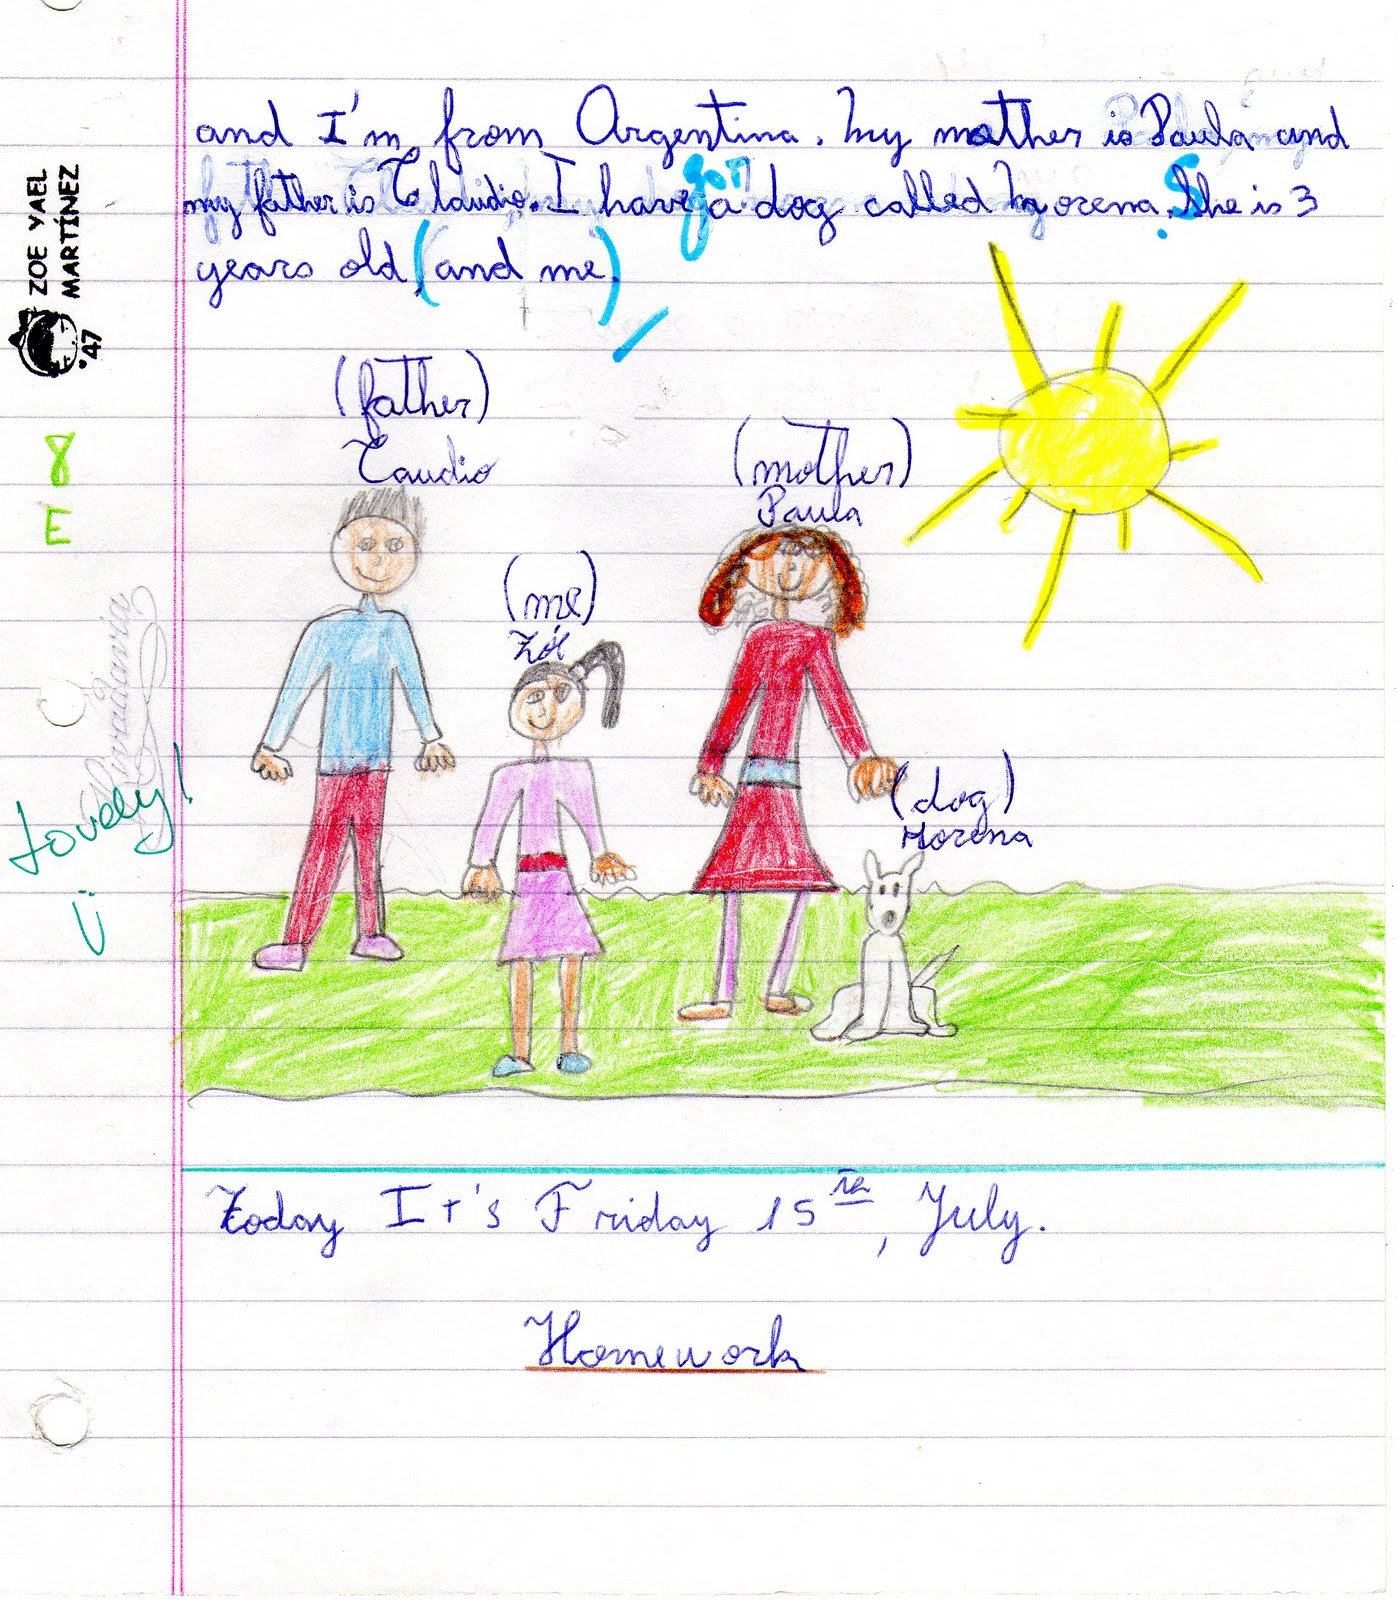 and I'm from Argentina. My mother is Paula and
got
my father is Claudio. I have a dog called Morena. She is 3
years old (and me)
ZOE YAEL
MARTÍNEZ
'47
8
E
(father)
Caudio
(mother)
Paula
(me)
Zóe
Rivadavia
(dog)
Morena
Lovely!
Today It's Friday 15th, July.
Homework